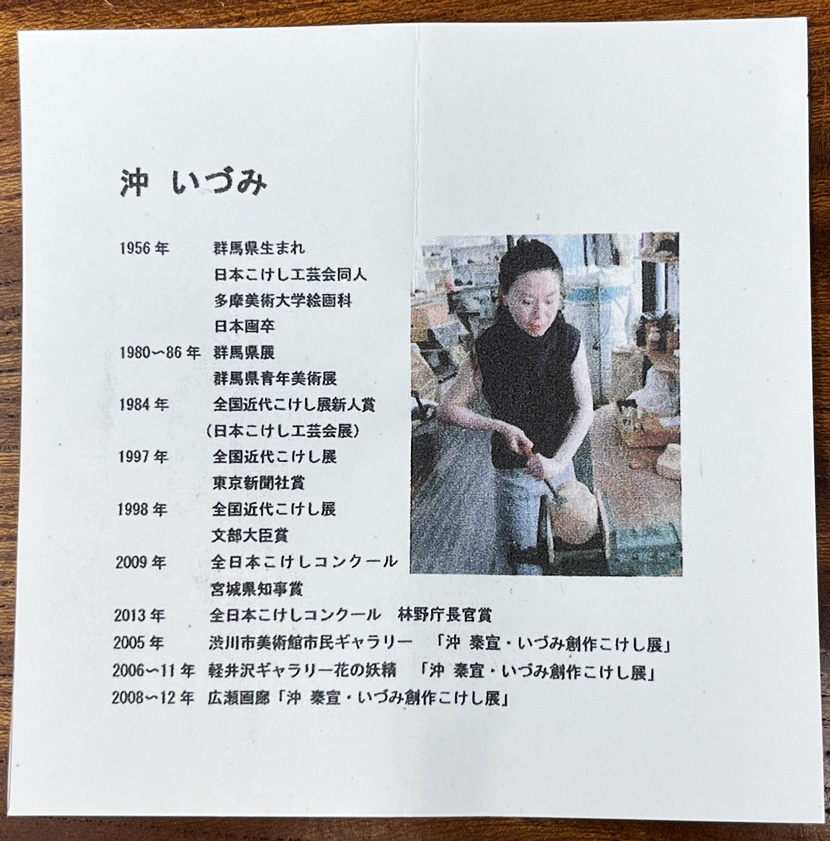 沖 いづみ
1956年 群馬県生まれ
日本こけし工芸会同人
多摩美術大学絵画科
日本画卒
1980~86年 群馬県展
群馬県青年美術展
1984年 全国近代こけし展新人賞
(日本こけし工芸会展)
1997年 全国近代こけし展
東京新聞社賞
1998年 全国近代こけし展
文部大臣賞
2009年 全日本こけしコンクール
宮城県知事賞
2013年 全日本こけしコンクール 林野庁長官賞
2005年 渋川市美術館市民ギャラリー 「沖 秦宣・いづみ創作こけし展」
2006~11年 軽井沢ギャラリー花の妖精 「沖 秦宣・いづみ創作こけし展」
2008~12年 広瀬画廊「沖 秦宣・いづみ創作こけし展」